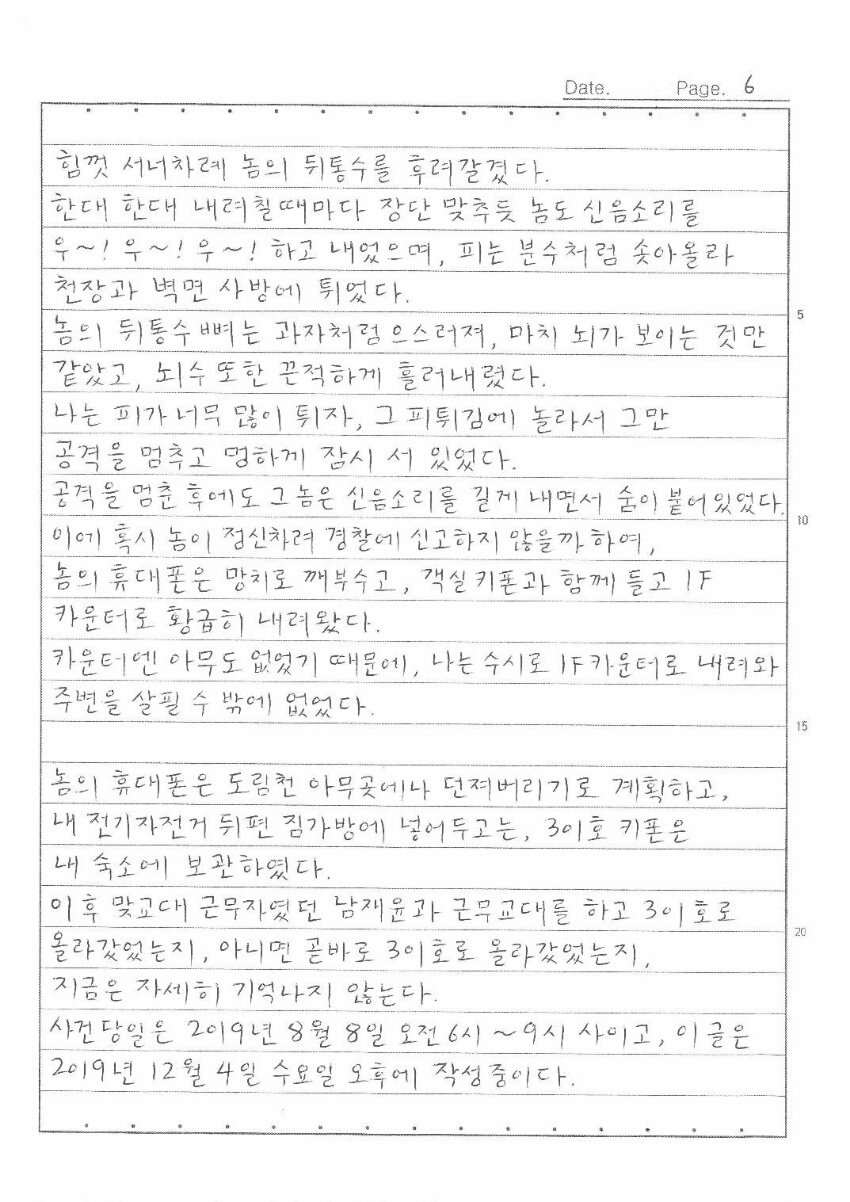 Date. Page. 6
힘껏 서너차례 놈의 뒤통수를 후려갈겼다.
한대 한대 내려칠때마다 장단 맞추듯 놈도 신음소리를
우~! 우~! 우~! 하고 내었으며, 피는 분수처럼 솟아올라
천장과 벽면 사방에 튀었다.
5
놈의 뒤통수뼈는 과자처럼 으스러져, 마치 뇌가 보이는 것만
같았고, 뇌수 또한 끈적하게 흘러내렸다.
나는 피가 너무 많이 튀자, 그 피튀김에 놀라서 그만
공격을 멈추고 멍하게 잠시 서 있었다.
공격을 멈춘 후에도 그 놈은 신음소리를 길게 내면서 숨이 붙어있었다.
10
이에 혹시 놈이 정신차려 경찰에 신고하지 않을까 하여,
놈의 휴대폰은 망치로 깨부수고, 객실키폰과 함께 들고 1F
카운터로 황급히 내려왔다.
카운터엔 아무도 없었기 때문에, 나는 수시로 1F카운터로 내려와
주변을 살필 수 밖에 없었다.
15
놈의 휴대폰은 도림천 아무곳에나 던져버리기로 계획하고,
내 전기자전거 뒤편 짐가방에 넣어두고는, 301호 키폰은
내 숙소에 보관하였다.
이후 맞교대 근무자였던 남재윤과 근무교대를 하고 301호로
20
올라갔었는지, 아니면 곧바로 301호로 올라갔었는지,
지금은 자세히 기억나지 않는다.
사건당일은 2019년 8월 8일 오전 6시 ~ 9시 사이고, 이 글은
2019년 12월 4일 수요일 오후에 작성중이다.